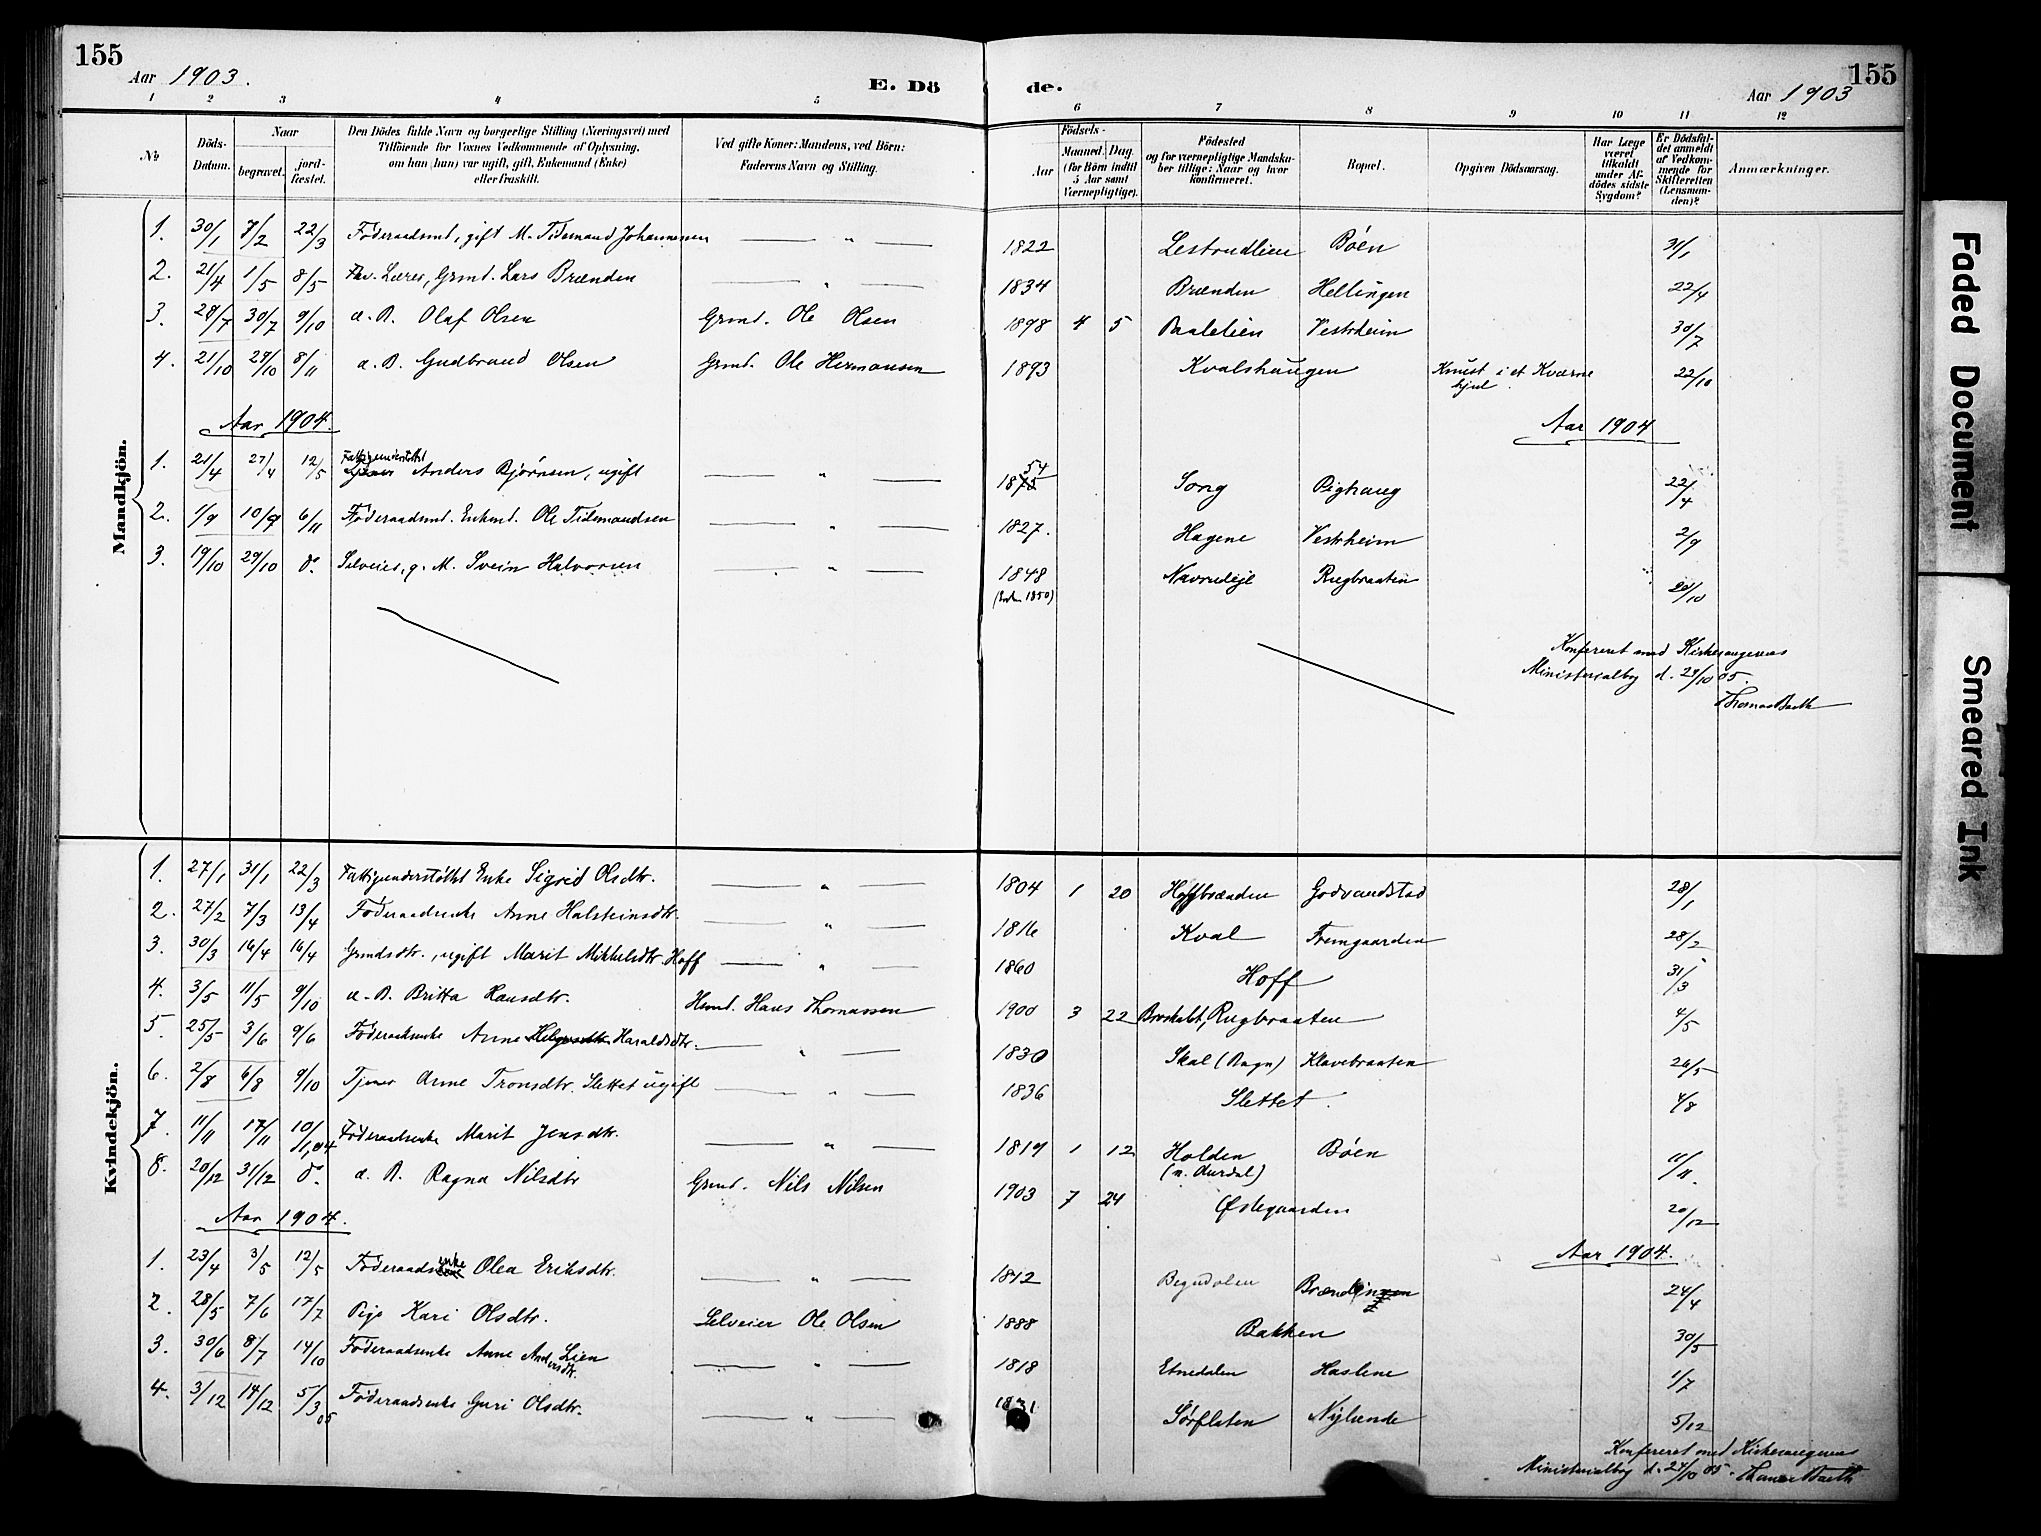 155
Aar 1903.
E. Dö
de.
Aar 1903
155
1 2 3 4 5 6 7 8 9 10 11 12
No
Döds-Datum.
Naar
begravet.
jord-fæstet.
Den Dödes fulde Navn og borgerlige Stilling (Næringsvei) med
Tilföiende for Voxnes Vedkommende af Oplysning,
om han (hun) var ugift, gift, Enkemand (Enke)
eller fraskilt.
Ved gifte Koner: Mandens, ved Börn:
Faderens Navn og Stilling.
Födsels-
Aar
Maaned. Dag.
(for Börn indtil
5 Aar samt
Værnepligtige).
Födested
og for værnepligtige Mandska-
ber tillige: Naar og hvor
konfirmeret.
Bopæl.
Opgiven Dödsaarsag.
Har Læge
været
tilkaldt
under Af-
dödes sidste
Sygdom?
Er Dödsfal-
det anmeldt
af Vedkom-
mende for
Skifteretten
(Lensman-
den)?
Anmærkninger.
Mandkjön.
1. 30/1 7/2 22/3 Föderaadsmd, gift M. Tidemand Johannessen — " — 1822 Lestrudlien Böen 31/1
2. 21/4 1/5 8/5 Fhv. Lærer, Grmd. Lars Brænden — " — 1834 Brænden Hellingen 22/4
3. 28/7 30/7 9/10 a. B. Olaf Olsen Grmd. Ole Olsen 1898 4 5 Baalelien Vestrheim 30/7
4. 21/10 28/10 8/11 a. B. Gudbrand Olsen Grmd. Ole Hermansen 1893 Kvalshaugen Knust i et Kværne
hjul 22/10
Aar 1904. Aar 1904
1. 21/4 27/4 12/5 Fattigunderstöttet Anders Bjørnsen, ugift — " — 1875 54 Song Pighaug 22/4
2. 1/9 10/9 6/11 Föderaadsmd. Enkmd. Ole Tidemandsen — " — 1827. Hagene Vestrheim 2/9
3. 19/10 29/10 do. Selveier, g. M. Svein Halvorsen — " — 1848 Rugbraaten 20/10
Konfereret med Kirkesangerens
Ministerialbog d. 28/10 05.
Thomas Barth
Kvindekjön.
1. 27/1 31/1 22/3 Fattigunderstöttet Enke Sigrid Olsdtr. — " — 1804 1 20 Hoffbrænden Godvandstad 28/1
2. 27/2 7/3 13/4 Föderaadsenke Anne Halsteinsdtr. — " — 1816 Kval Fremgaarden 28/2
3. 30/3 16/4 16/4 Grmdsdtr., ugift Marit Mikkelsdtr. Hoff — " — 1860 Hoff 31/3
4. 3/5 11/5 9/10 a. B. Britta Hansdtr. Hsmd. Hans Thomassen 1900 3 22 Rugbraaten 4/5
5. 25/5 3/6 9/6 Föderaadsenke Anne Haraldsdtr. — " — 1830 Skal (Bagn) Klavebraaten 26/5
6. 2/8 6/8 9/10 Tjener Anne Tronsdtr. Slettet ugift — " — 1836 Slettet. 4/8
7. 11/11 17/11 10/1,04 Föderaadsenke Marit Jensdtr. — " — 1819 1 12 Holden
(n. Aurdal) Böen 11/11.
8. 20/12 31/12 do. a. B. Ragna Nilsdtr Grmd. Nils Nilsen 1903 7 24 Østegaarden 20/12
Aar 1904. Aar 1904.
1. 23/4 3/5 12/5 Föderaadsenke Olea Eriksdtr. — " — 1812 Begndalen 24/4
2. 28/5 7/6 17/7 Pige Kari Olsdtr. Selveier Ole Olsen 1888 Bakken 30/5
3. 30/6 8/7 14/10 Föderaadsenke Anne Andersdtr. Lien — " — 1818 Etnedalen Haslene 1/7
4. 3/12 14/12 5/3 05 Föderaadsenke Guri Olsdtr. — " — 1831 Sörflaten Nylænde 5/12
Konfereret med Kirkesangerens
Ministerialbog d. 28/10 05. Thomas Barth
Faded Document
Smeared Ink